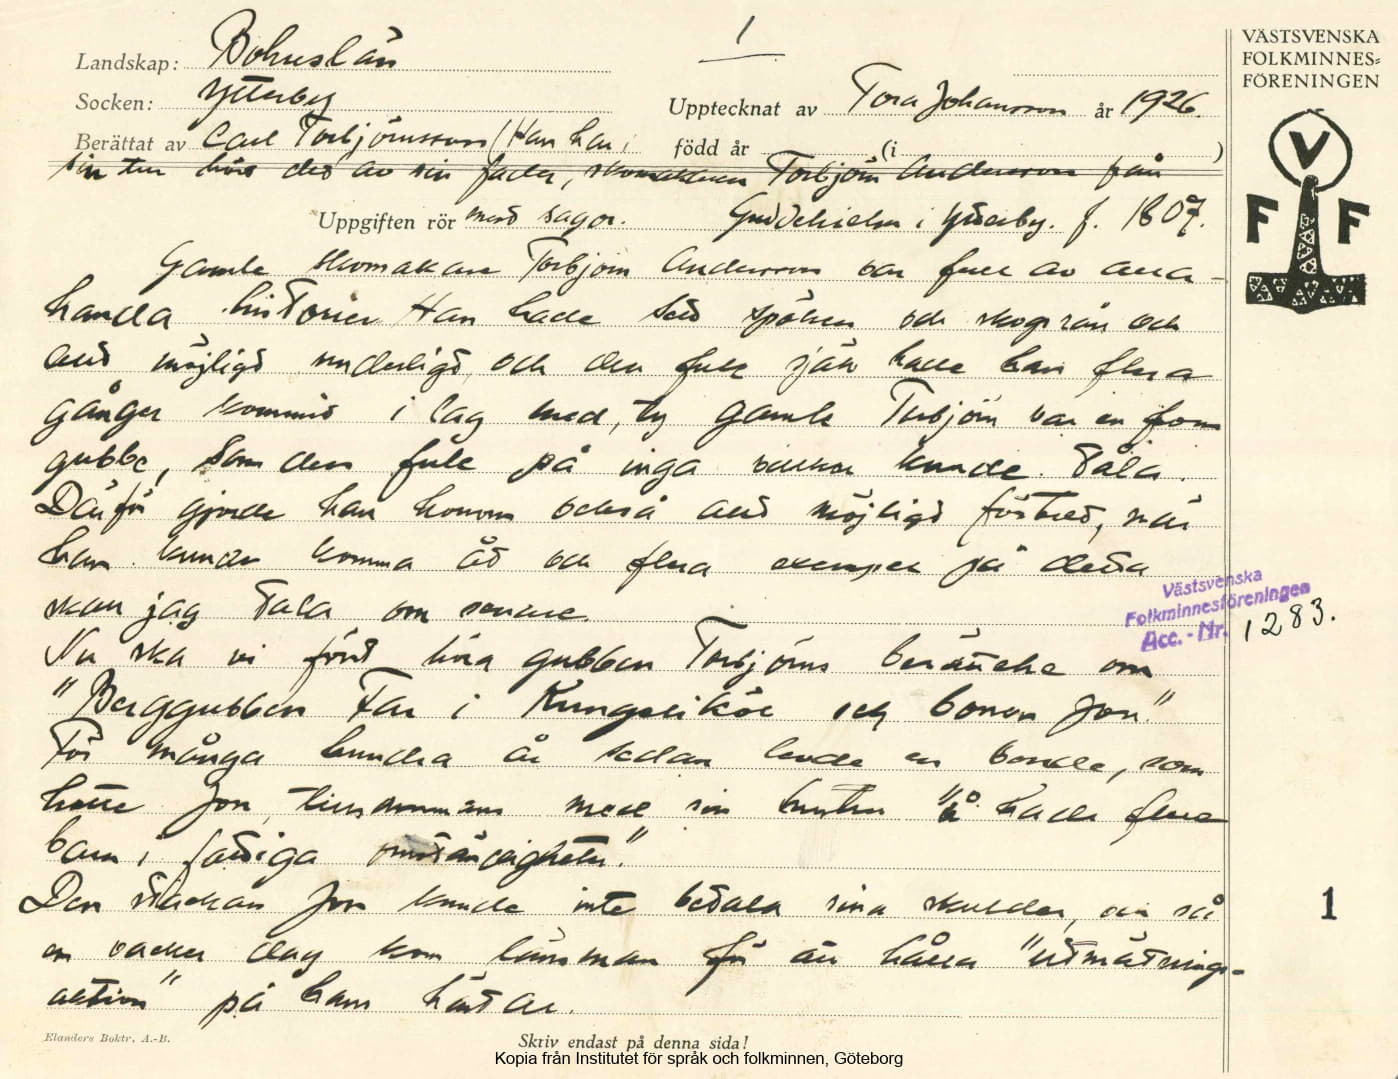 1
VÄSTSVENSKA
FOLKMINNES=
FÖRENINGEN
V
F F
Landskap: Bohuslän
Socken: Ytterby
Upptecknat av Tora Johansson år 1926.
Berättat av Carl Torbjörnsson (Han har i
född år (i )
sin tur hört det av sin fader, skomakaren Torbjörn Andersson från
Uppgiften rör med sagor. i Ytterby. f. 1807.
Gamle skomakare Torbjörn Andersson var full av alla-
handa historier. Han hade sett spöken och skogsrån och
allt möjligt underligt, och den fule själv hade han flera
gånger kommit i lag med, ty gamle Torbjörn var en from
gubbe, som den fule på inga villkor kunde tåla.
Därför gjorde han honom också allt möjligt förtret, när
han kunde komma åt och flera exempel på detta
skall jag tala om senare.
Nu ska vi först höra gubben Torbjörns berättelse om
"Berggubben Far i Kungälvköl och bonon Jon."
För många hundra år sedan levde en bonde, som
hette Jon, tillsammans med sin hustru "å hade flera
barn i fattiga omständigheter."
Den stackan Jon kunde inte betala sina skulder, och så
en vacker dag kom länsman för att hålla "utmätnings-
auktion" på hans hästar.
Västsvenska
Folkminnesföreningen
Acc.-Nr. 1283.
1
Elanders Boktr. A.-B.
Skriv endast på denna sida!
Kopia från Institutet för språk och folkminnen, Göteborg